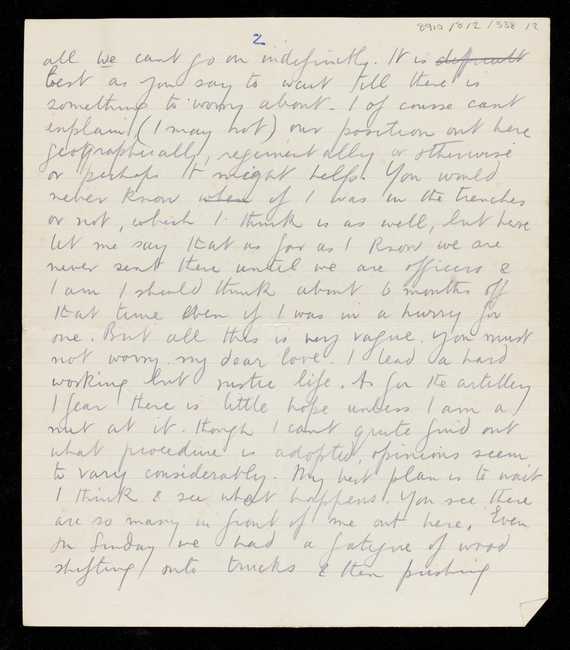 8910/8/2/338/2
2
all we cant go on indefinitly. It is difficult
best as you say to wait till there is
something to worry about. I of course cant
explain (I may not) our position out here
geographically, regimentally or otherwise
or perhaps it might help. You would
never know when if I was in the trenches
or not, which I think is as well, but here
let me say that as far as I know we are
never sent there until we are officers &
I am I should think about 6 months off
that time even if I was in a hurry for
one. But all this is very vague. You must
not worry my dear love. I lead a hard
working but rustic life. As for the artillery
I fear there is little hope unless I am a
nut at it. though I cant quite find out
what procedure is adopted, opinions seem
to vary considerably. My best plan is to wait
I think & see what happens. You see there
are so many in front of me out here. Even
on Sunday we had a fatigue of wood
shifting onto trucks & then pushing